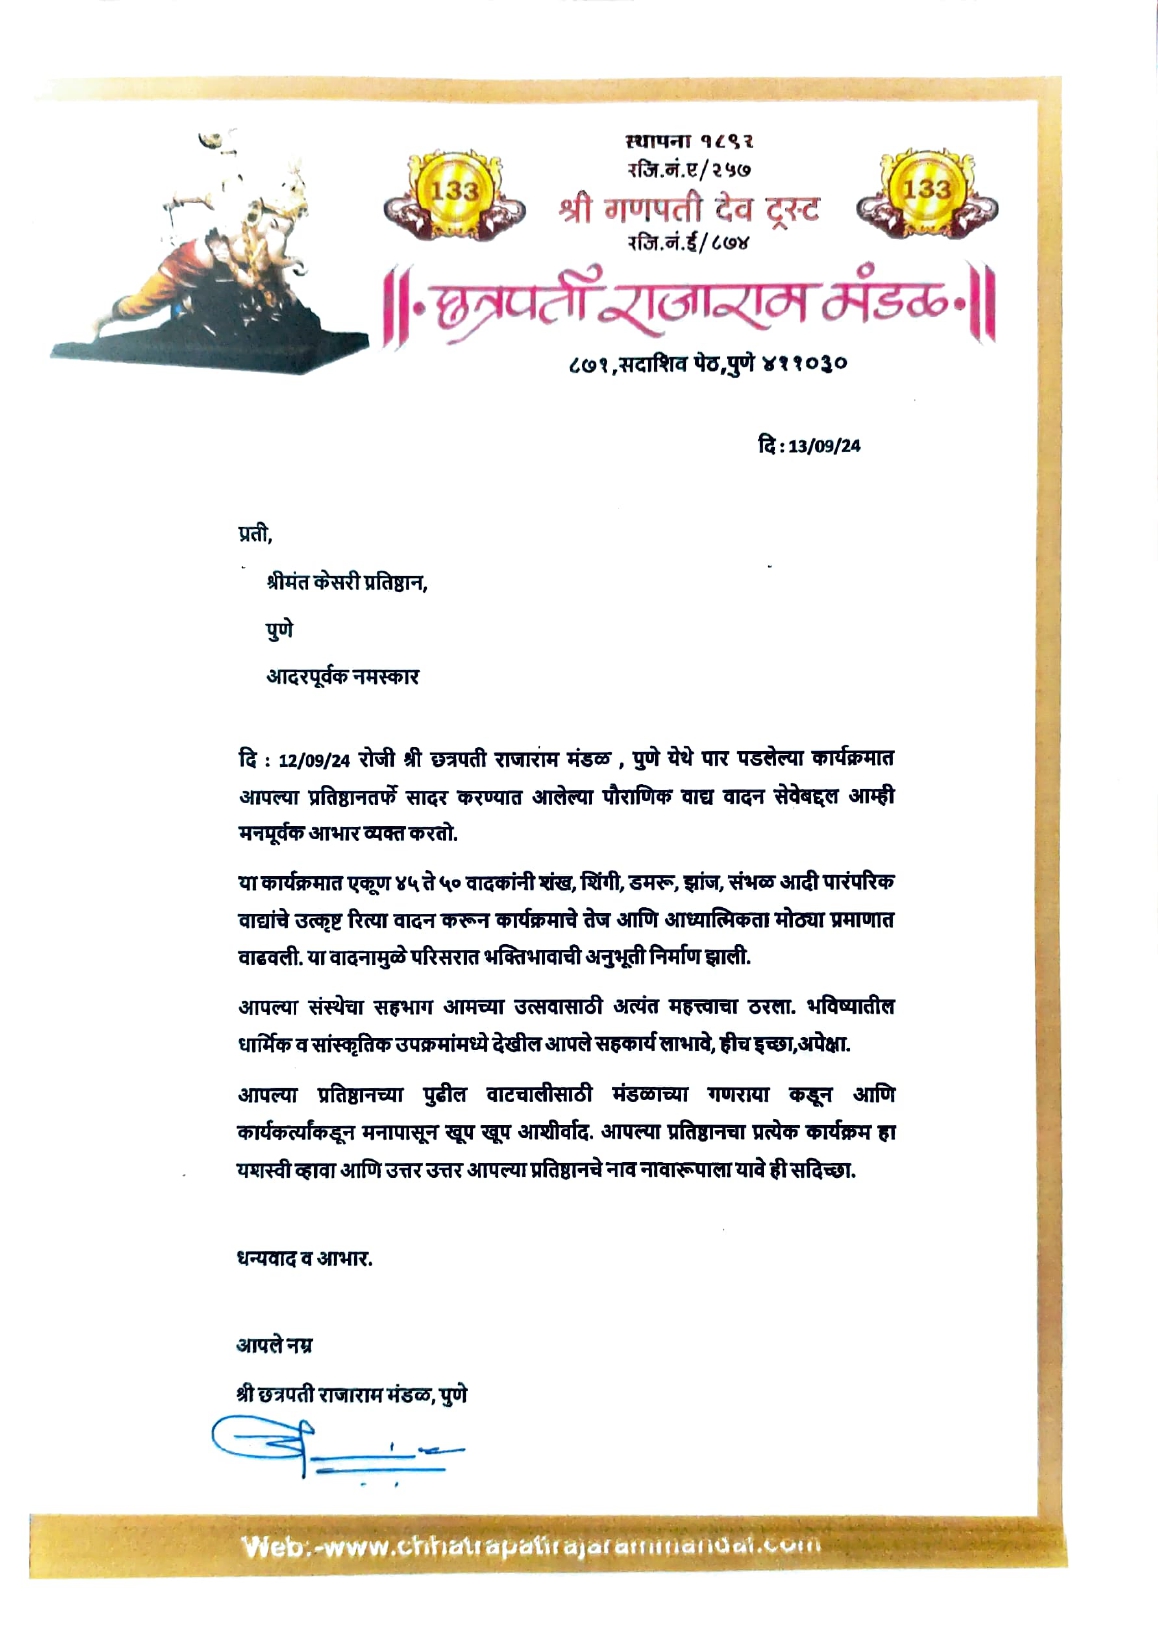 स्थापना १८९२
रजि.नं.ए/२५७
133
133
श्री गणपती देव ट्रस्ट
रजि.नं.ई/८७४
||·छत्रपती राजाराम मंडळ·||
८७१,सदाशिव पेठ,पुणे ४११०३०
दि : 13/09/24
प्रती,
श्रीमंत केसरी प्रतिष्ठान,
पुणे
आदरपूर्वक नमस्कार
दि : 12/09/24 रोजी श्री छत्रपती राजाराम मंडळ , पुणे येथे पार पडलेल्या कार्यक्रमात
आपल्या प्रतिष्ठानतर्फे सादर करण्यात आलेल्या पौराणिक वाद्य वादन सेवेबद्दल आम्ही
मनपूर्वक आभार व्यक्त करतो.
या कार्यक्रमात एकूण ४५ ते ५० वादकांनी शंख, शिंगी, डमरू, झांज, संभळ आदी पारंपरिक
वाद्यांचे उत्कृष्ट रित्या वादन करून कार्यक्रमाचे तेज आणि आध्यात्मिकता मोठ्या प्रमाणात
वाढवली. या वादनामुळे परिसरात भक्तिभावाची अनुभूती निर्माण झाली.
आपल्या संस्थेचा सहभाग आमच्या उत्सवासाठी अत्यंत महत्त्वाचा ठरला. भविष्यातील
धार्मिक व सांस्कृतिक उपक्रमांमध्ये देखील आपले सहकार्य लाभावे, हीच इच्छा,अपेक्षा.
आपल्या प्रतिष्ठानच्या पुढील वाटचालीसाठी मंडळाच्या गणराया कडून आणि
कार्यकर्त्यांकडून मनापासून खूप खूप आशीर्वाद. आपल्या प्रतिष्ठानचा प्रत्येक कार्यक्रम हा
यशस्वी व्हावा आणि उत्तर उत्तर आपल्या प्रतिष्ठानचे नाव नावारूपाला यावे ही सदिच्छा.
धन्यवाद व आभार.
आपले नम्र
श्री छत्रपती राजाराम मंडळ, पुणे
Web:-www.chhatrapatirajarammandal.com